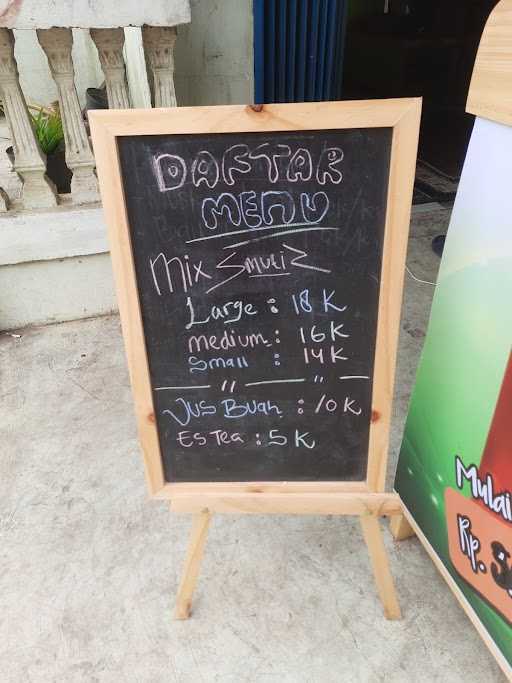 DAFTAR
MENU
Mix Smuti
Large : 18 K
Medium : 16 K
Small : 14 K
Jus Buah : 10 K
Es Tea : 5 K
Mulai
Rp.